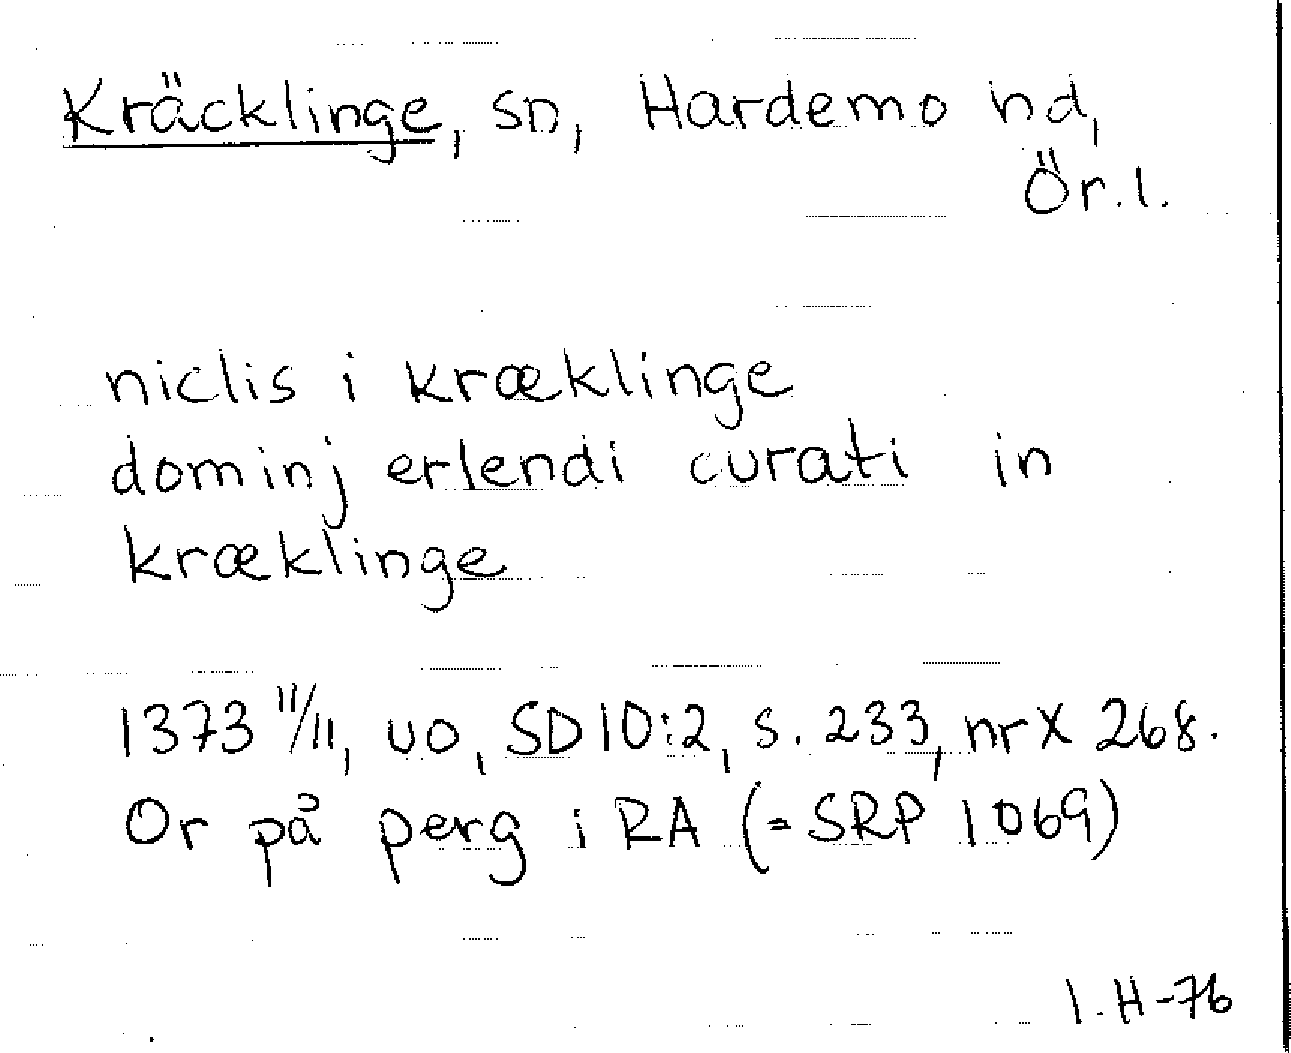 Kräcklinge, sn, Hardemo hd,
Ör.l.
niclis i kræklinge
dominj erlendi curati in
kræklinge
1373 11/11, uo, SD 10:2, s. 233, nr X 268.
Or på perg i RA (= SRP 1069)
I.H-76